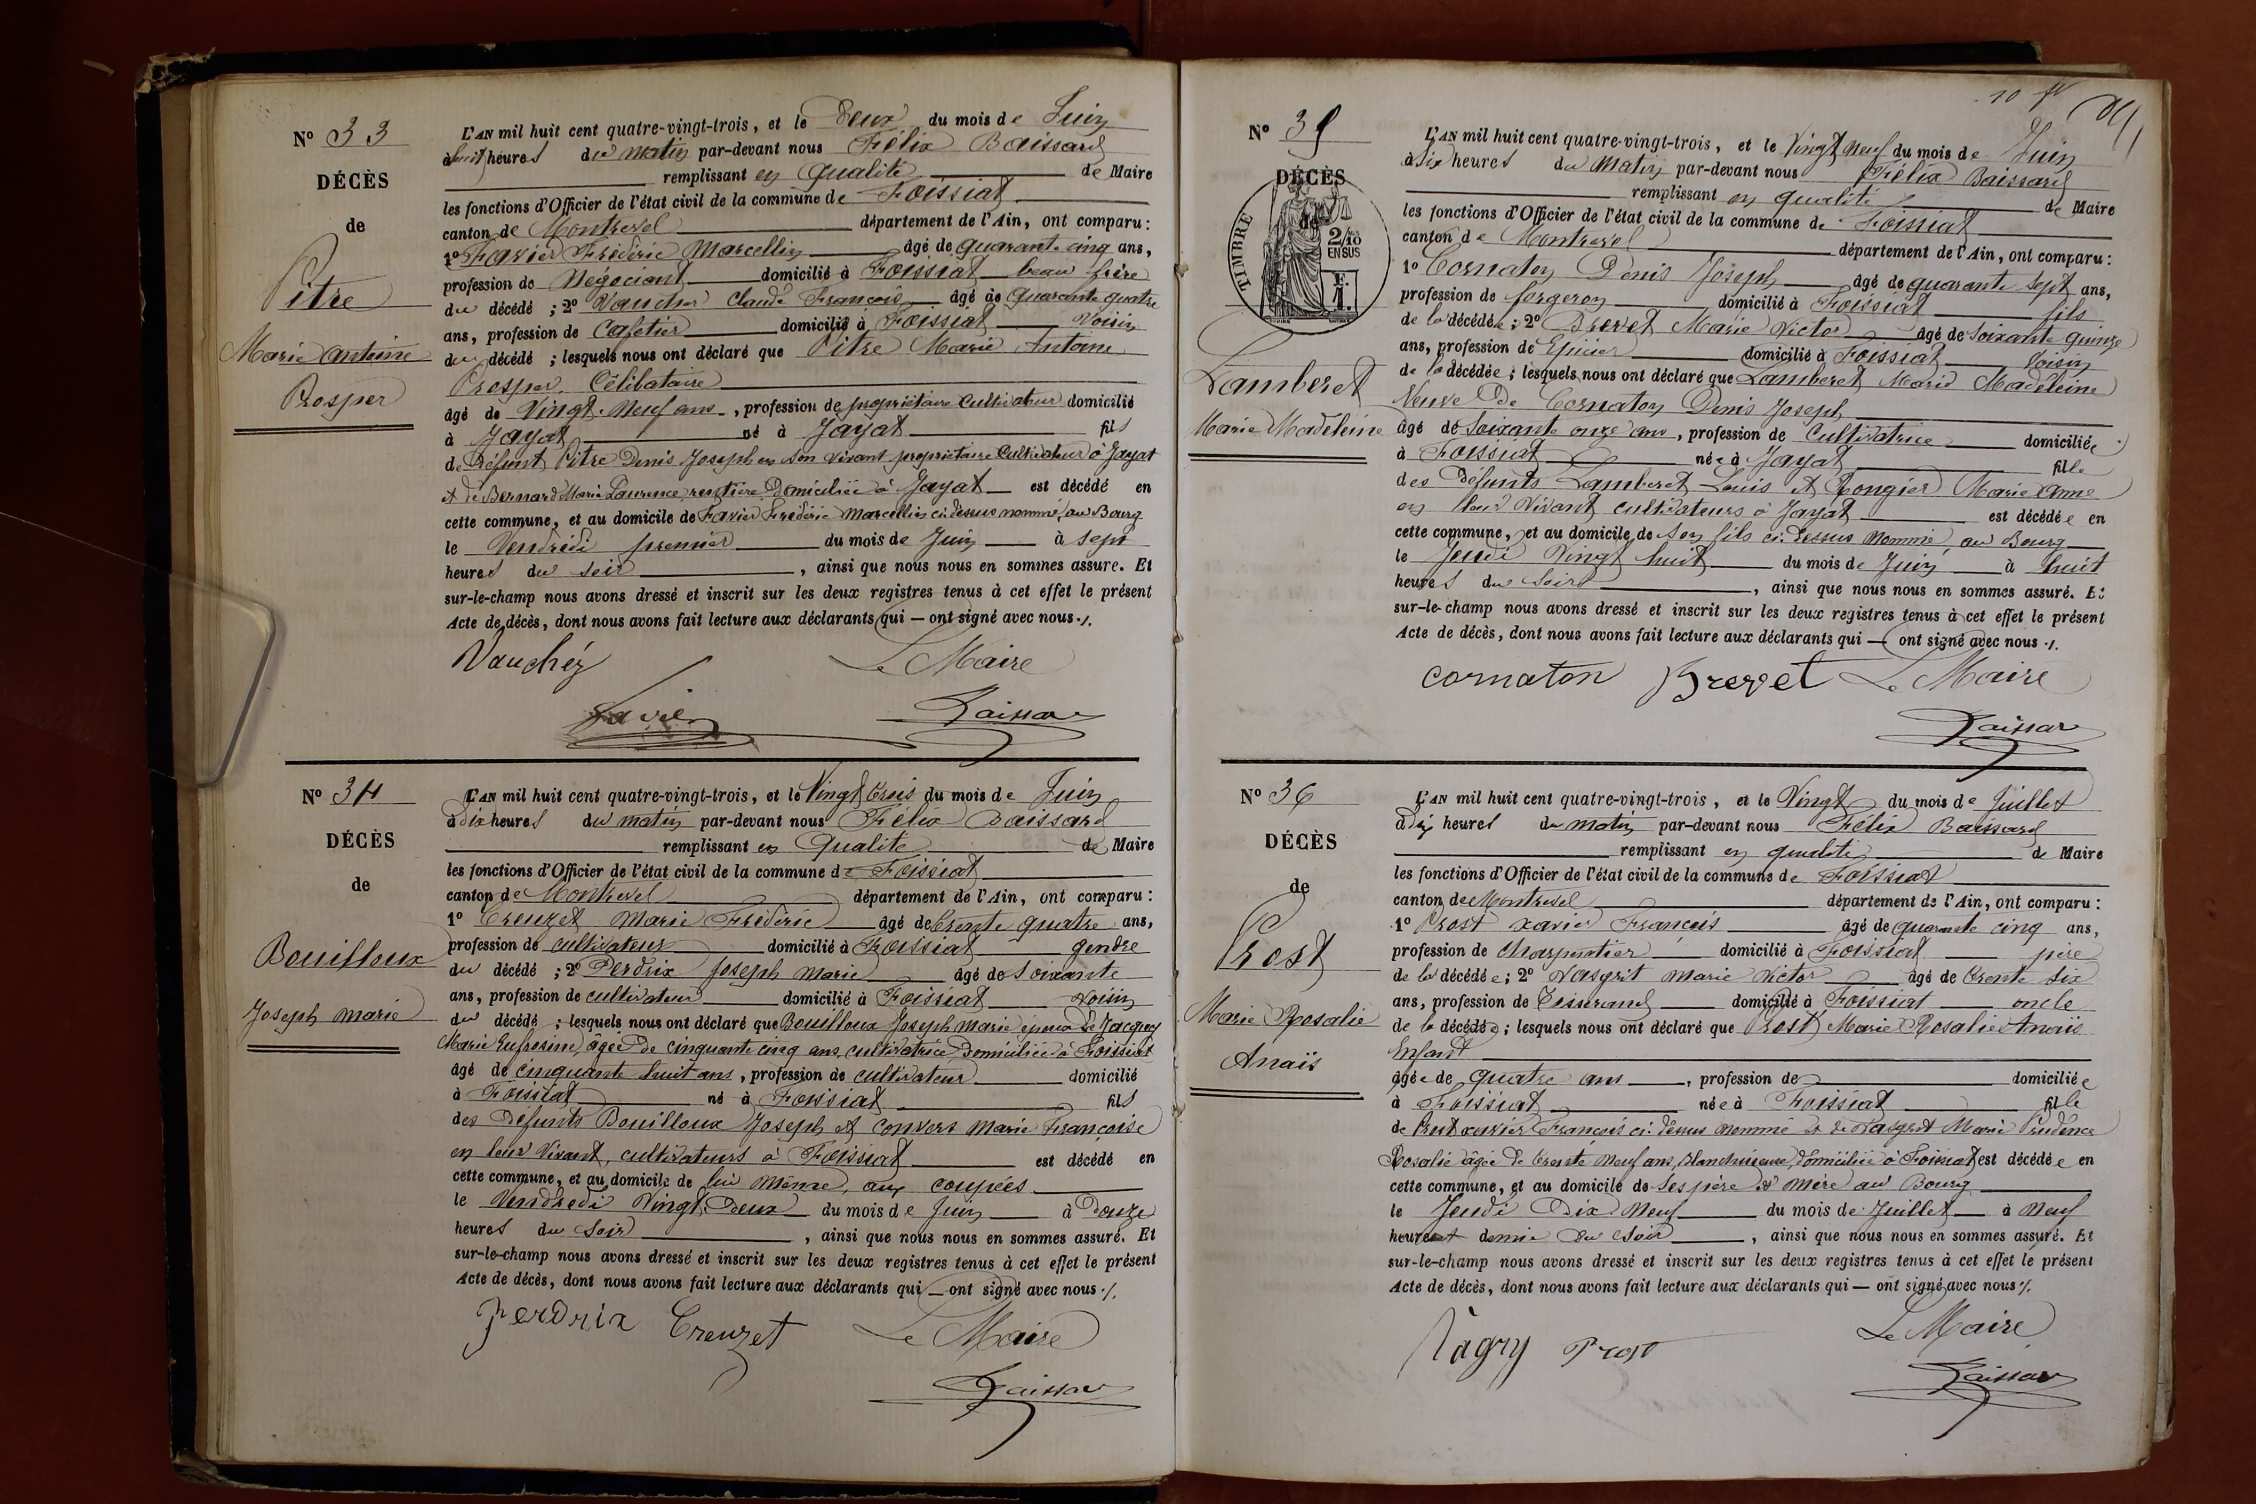 N° 33
DÉCÈS
de
Pitre
Marie Antoine
Prosper
L'AN mil huit cent quatre-vingt-trois, et le Deux du mois de Juin
à huit heures du matin par-devant nous Félix Baissard
remplissant en qualité de Maire
les fonctions d'Officier de l'état civil de la commune de Foissiat
canton de Montrevel département de l'Ain, ont comparu :
1° Favier Frédéric Marcellin âgé de quarante cinq ans,
profession de Négociant domicilié à Foissiat beau frère
du décédé ; 2° Vaucher Claude François âgé de quarante quatre
ans, profession de Cafetier domicilié à Foissiat Voisin
du décédé ; lesquels nous ont déclaré que Pitre Marie Antoine
Prosper Célibataire
âgé de Vingt-Neuf ans, profession de propriétaire Cultivateur domicilié
à Jayat né à Jayat fils
de Défunt Pitre Denis Joseph en son vivant propriétaire Cultivateur à Jayat
et de Bernard Marie Laurence rentière Domiciliée à Jayat est décédé en
cette commune, et au domicile de Favier Frédéric Marcellin ci-dessus nommé, au Bourg
le Vendredi premier du mois de Juin à sept
heures du soir, ainsi que nous nous en sommes assuré. Et
sur-le-champ nous avons dressé et inscrit sur les deux registres tenus à cet effet le présent
Acte de décès, dont nous avons fait lecture aux déclarants qui — ont signé avec nous ./.
Vauchér Le Maire
Favier Baissard
N° 34
DÉCÈS
de
Bouilloux
Joseph marie
L'AN mil huit cent quatre-vingt-trois, et le Vingt trois du mois de Juin
à dix heures du matin par-devant nous Félix Baissard
remplissant en Qualité de Maire
les fonctions d'Officier de l'état civil de la commune de Foissiat
canton de Montrevel département de l'Ain, ont comparu :
1° Creuzet Marie Frédéric âgé de trente quatre ans,
profession de cultivateur domicilié à Foissiat gendre
du décédé ; 2° Perdrix Joseph Marie âgé de soixante
ans, profession de cultivateur domicilié à Foissiat Voisin
du décédé ; lesquels nous ont déclaré que Bouilloux Joseph Marie époux de Jacquey
Marie Eufrosine, âgée de cinquante cinq ans, cultivatrice Domiciliée à Foissiat
âgé de cinquante huit ans, profession de cultivateur domicilié
à Foissiat né à Foissiat fils
des Défunts Bouilloux Joseph et Convers Marie Françoise
en leur Vivant, cultivateurs à Foissiat est décédé en
cette commune, et au domicile de lui même, aux coupées
le Vendredi Vingt-Deux du mois de Juin à Douze
heures du Soir, ainsi que nous nous en sommes assuré. Et
sur-le-champ nous avons dressé et inscrit sur les deux registres tenus à cet effet le présent
Acte de décès, dont nous avons fait lecture aux déclarants qui — ont signé avec nous ./.
Perdrix Creuzet Le Maire
Baissard
10 f
N° 35
DÉCÈS
de
TIMBRE
2/10
EN SUS
Lamberet
Marie Madeleine
L'AN mil huit cent quatre-vingt-trois, et le Vingt Neuf du mois de Juin
à Six heures du Matin par-devant nous Félix Baissard
remplissant en qualité de Maire
les fonctions d'Officier de l'état civil de la commune de Foissiat
canton de Montrevel département de l'Ain, ont comparu :
1° Cornaton Denis Joseph âgé de quarante sept ans,
profession de forgeron domicilié à Foissiat fils
de la décédée ; 2° Brevet Marie Victor âgé de soixante quinze
ans, profession de Epicier domicilié à Foissiat Voisin
de la décédée ; lesquels nous ont déclaré que Lamberet Marie Madeleine
Veuve de Cornaton Denis Joseph
âgé de Soixante onze ans, profession de cultivatrice domiciliée
à Foissiat née à Jayat fille
des Défunts Lamberet Louis et Rongier Marie Anne
en leur Vivant cultivateurs à Jayat est décédée en
cette commune, et au domicile de Son fils ci-dessus Nommé, au Bourg
le Jeudi Vingt huit du mois de Juin à huit
heures du Soir, ainsi que nous nous en sommes assuré. Et
sur-le-champ nous avons dressé et inscrit sur les deux registres tenus à cet effet le présent
Acte de décès, dont nous avons fait lecture aux déclarants qui — ont signé avec nous ./.
cornaton Brevet Le Maire
Baissard
N° 36
DÉCÈS
de
Prost
Marie Rosalie
Anaïs
L'AN mil huit cent quatre-vingt-trois, et le Vingt du mois de Juillet
à Dix heures du matin par-devant nous Félix Baissard
remplissant en qualité de Maire
les fonctions d'Officier de l'état civil de la commune de Foissiat
canton de Montrevel département de l'Ain, ont comparu :
1° Prost xavier François âgé de quarante cinq ans,
profession de Charpentier domicilié à Foissiat père
de la décédée ; 2° Vasgrit Marie Victor âgé de trente six
ans, profession de Tisserand domicilié à Foissiat oncle
de la décédée ; lesquels nous ont déclaré que Prost Marie Rosalie Anaïs
Enfant
âgée de quatre ans, profession de domiciliée
à Foissiat née à Foissiat fille
de Prost xavier François ci-dessus nommé et de Vasgrit Marie Prudence
Rosalie âgée de trente Neuf ans, Blanchisseuse, domiciliée à Foissiat est décédée en
cette commune, et au domicile de Ses père & mère au Bourg
le Jeudi Dix Neuf du mois de Juillet à Neuf
heures et demie du Soir, ainsi que nous nous en sommes assuré. Et
sur-le-champ nous avons dressé et inscrit sur les deux registres tenus à cet effet le présent
Acte de décès, dont nous avons fait lecture aux déclarants qui — ont signé avec nous ./.
Le Maire
Vàgry Prost
Baissard